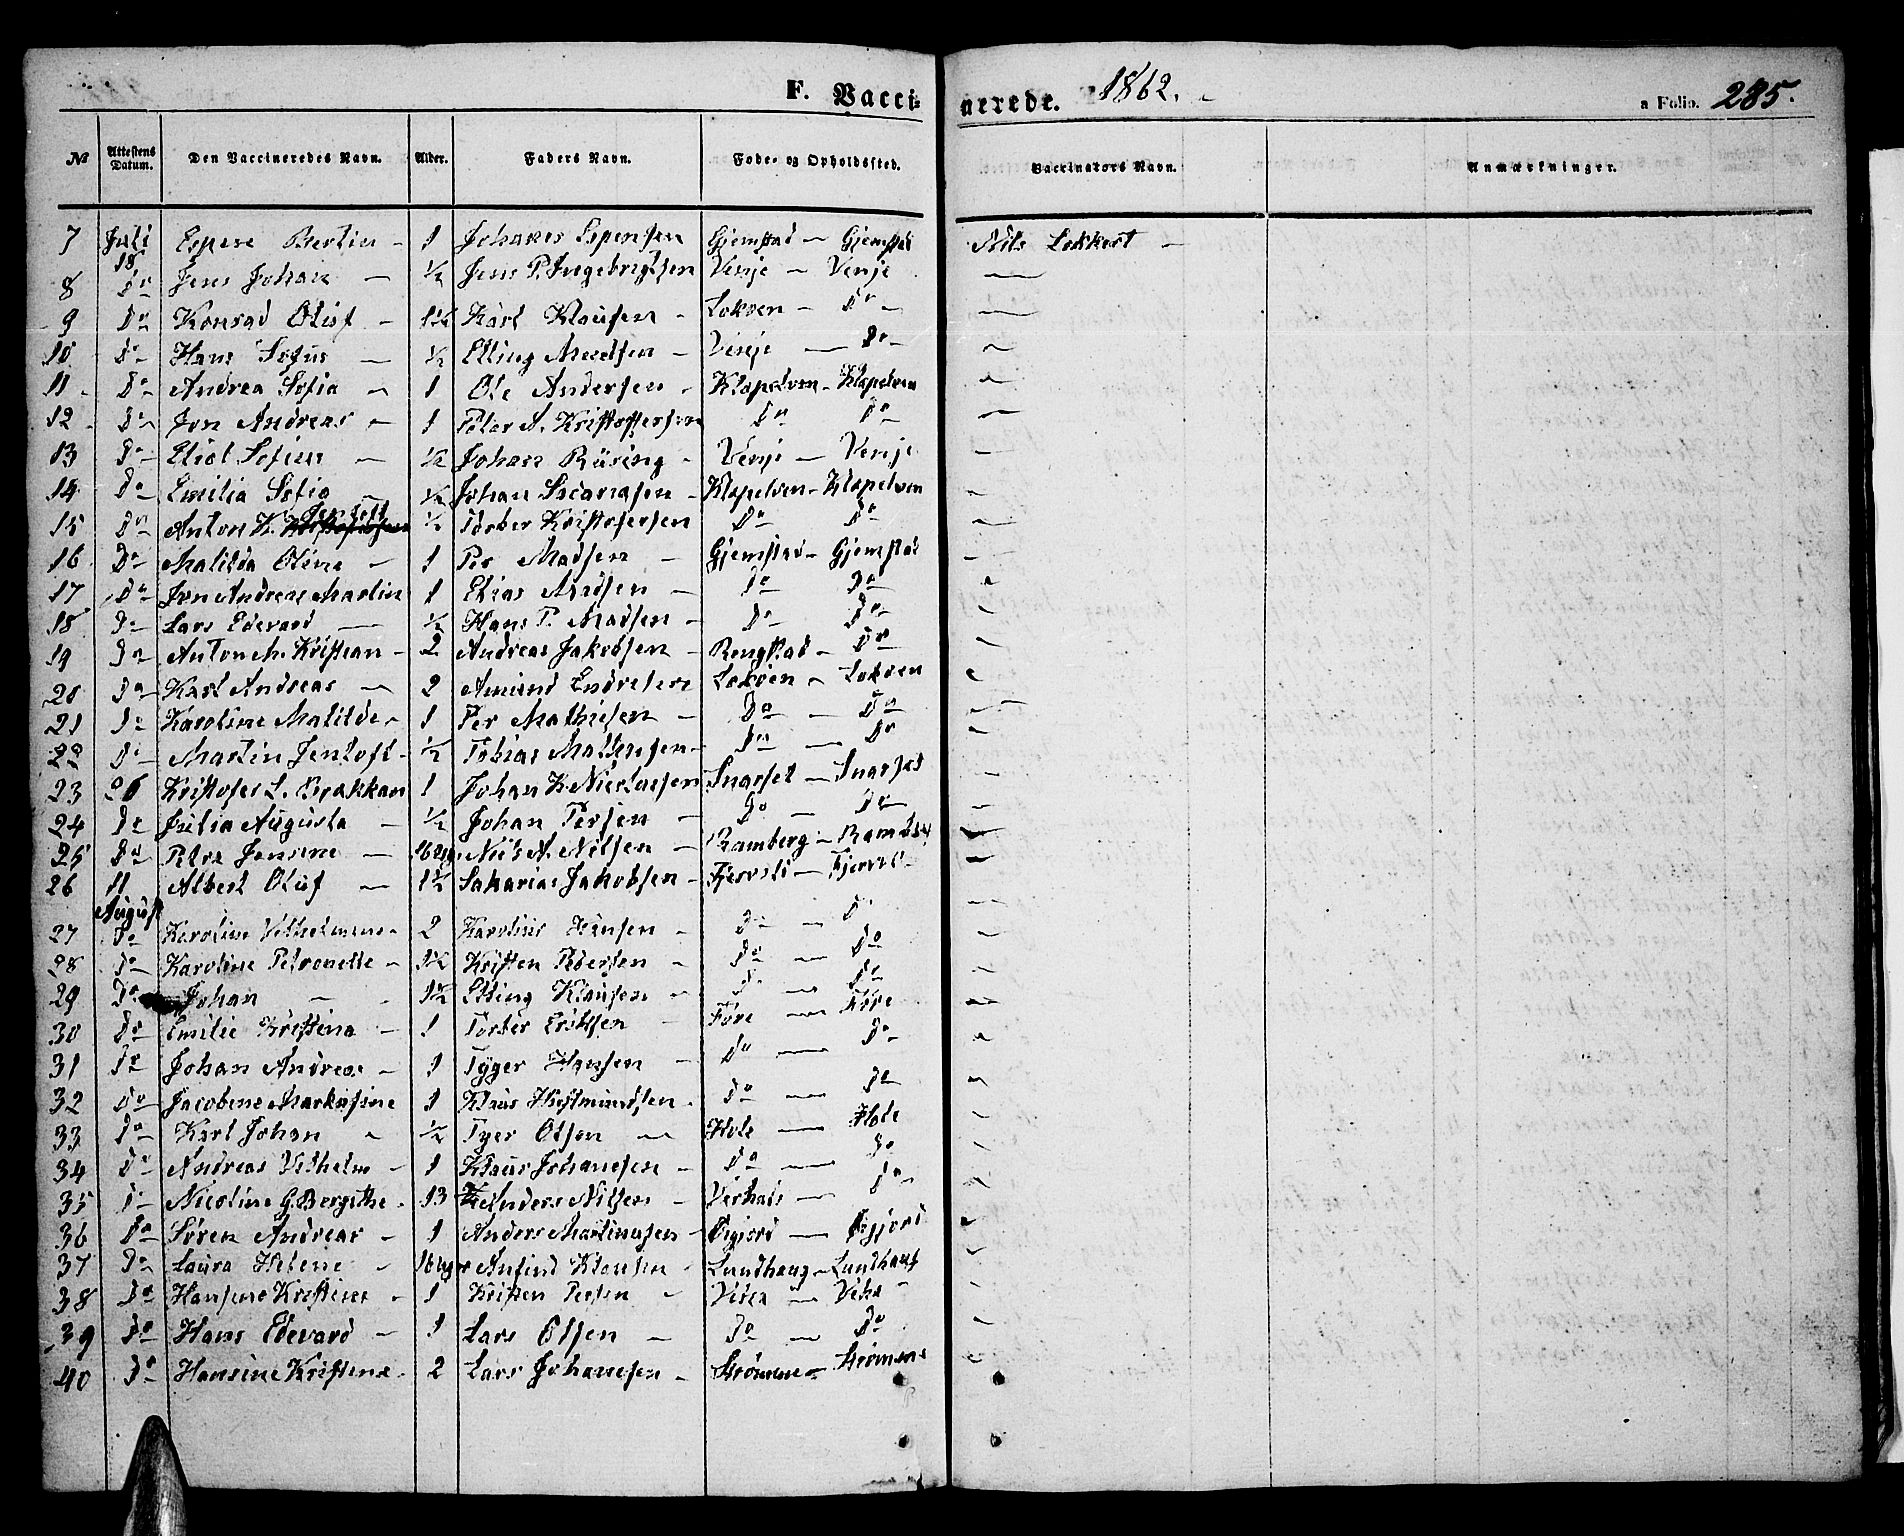 F. Vacci-
nerede. 1862.
a Folio. 285.
No Attestens Datum. Den Vaccineredes Navn. Alder. Faders Navn. Føde- og Opholdssted. Vaccinators Navn. Anmærkninger.
7 Juli 18 Espen Bertin 1 Johanes Espensen Gjemstad Gjemstad Nils Lokkert
8 Do Jens Johan 1/2 Jens P. Ingebrigtsen Venje Venje
9 Do Konrad Oluf 1 1/2 Karl Klausen Lokøen Do
10 Do Hans Sofus 1/2 Elling Venje Do
11 Do Andrea Sofia 1 Ole Andersen Klapelven Klapelven
12 Do Jon Andreas 1 Peter A. Kristoffersen Do Do
13 Do Eliot Sofius 1/2 Johan Rüsing Venje Venje
14 Do Emilia Sofia 1/2 Johan Klapelven Klapelven
15 Do Anton K. Jentoft 1/2 Torber Kristofersen Do Do
16 Do Matilda Oline 1 Per Madsen Gjemstad Gjemstad
17 Do Jon Andreas Martin 1 Elias Madsen Do Do
18 Do Lars Edevard 1/2 Hans P. Madsen Do Do
19 Do Anton M. Kristian 2 Andreas Jakobsen Ringstad Do
20 Do Karl Andreas 2 Amund Endresen Lokøen Lokøen
21 Do Karoline Matilde 1 Per Mathisen Do Do
22 Do Martin Jentoft 1/2 Tobias Mathisen Do Do
23 26 Kristofer L. Brakkan 1 Johan K. Nicolaisen Snarset Snarset
24 Do Julia Augusta 1/2 Johan Persen Do Do
25 Do Petra Jensine 16 ug. Niels A. Nilsen Ramberg Ramberg
26 11 August Albert Oluf 1 1/2 Sakarias Jakobsen Fjervoll Fjervoll
27 Do Karoline Vilhelmine 2 Karolius Hansen Do Do
28 Do Karoline Petronelle 1 1/2 Kristen Pedersen Do Do
29 Do Johan 1 1/2 Elling Klausen Do Do
30 Do Emilie Kristina 1 Torber Eriksen Føre Føre
31 Do Johan Andreas 1 Tyger Hansen Do Do
32 Do Jacobine Markusine 1 Klaus Do Do
33 Do Karl Johan 1/2 Tyer Olsen Hole Hole
34 Do Andreas Vilhelm 1 Klaus Johanesen Do Do
35 Do Nicoline G. Bergithe 13 Anders Nilsen Do
36 Do Søren Andreas 1 Anders Martinusen Ørgjord Ørgjord
37 Do Laura Helene 16 uger Anfind Klausen Lundhaug Lundhaug
38 Do Hansine Kristine 1 Kristen Persen Vikea Vika
39 Do Hans Edevard 1 Lars Olsen Do Do
40 Do Hansine Kristine 2 Lars Johanesen Strømme Strømme